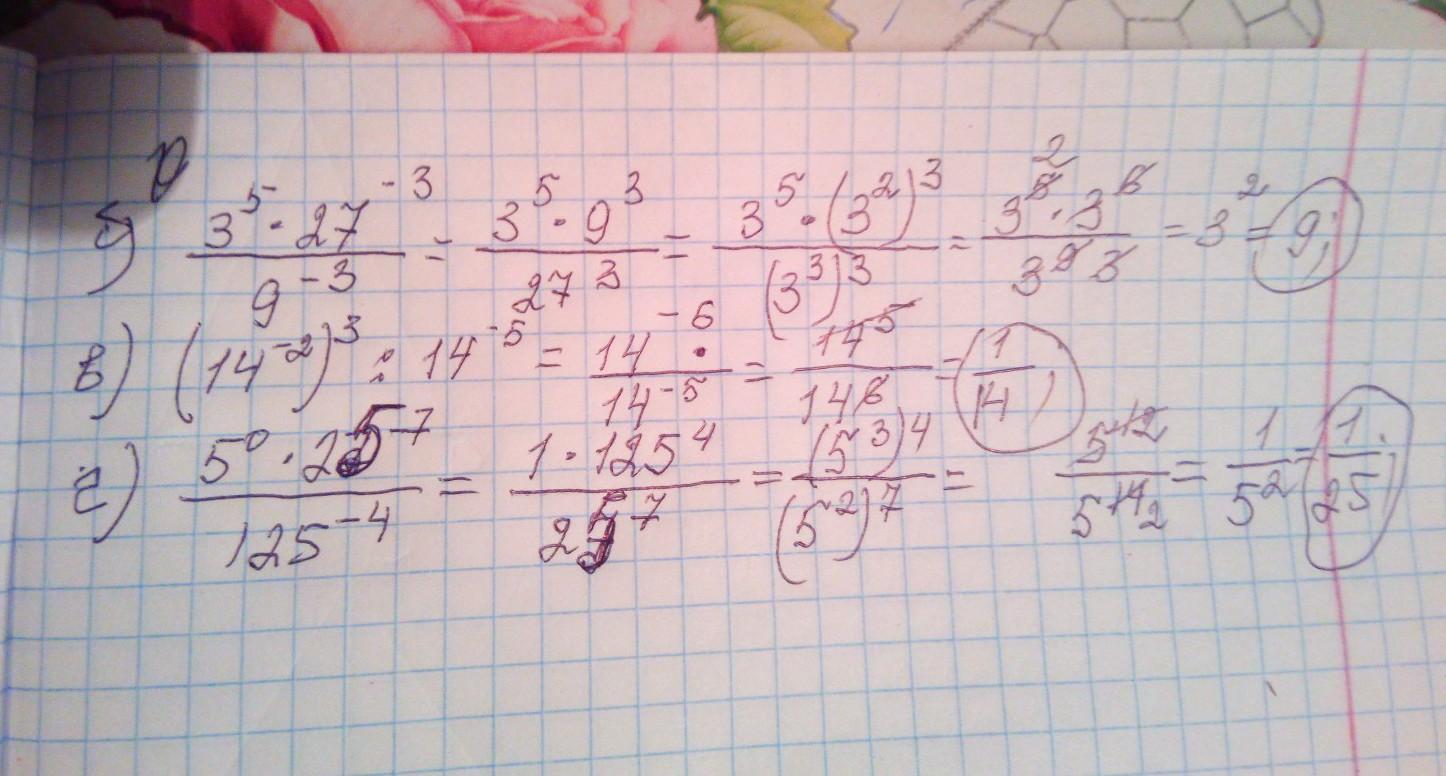 б) \frac{3^5 · 27^{-3}}{9^{-3}} = \frac{3^5 · 9^3}{27^3} = \frac{3^5 · (3^2)^3}{(3^3)^3} = \frac{3^{5 2} · 3^6}{3^{9 3}} = 3^2 = 9;
в) (14^{-2})^3 : 14^{-5} = \frac{14^{-6} ·}{14^{-5}} = \frac{14^5}{14^6} = \frac{1}{14};
г) \frac{5^0 · 25^{-7}}{125^{-4}} = \frac{1 · 125^4}{25^7} = \frac{(5^3)^4}{(5^2)^7} = \frac{5^{12}}{5^{14 2}} = \frac{1}{5^2} = \frac{1}{25};